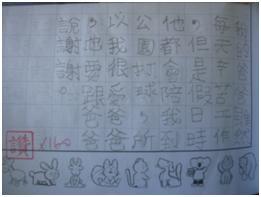 我的爸爸雖然
每天辛苦工作
，但是假日時
他都會陪我到
公園打球，所
以我很愛爸爸
，也要跟爸爸
說謝謝。
讚 x160